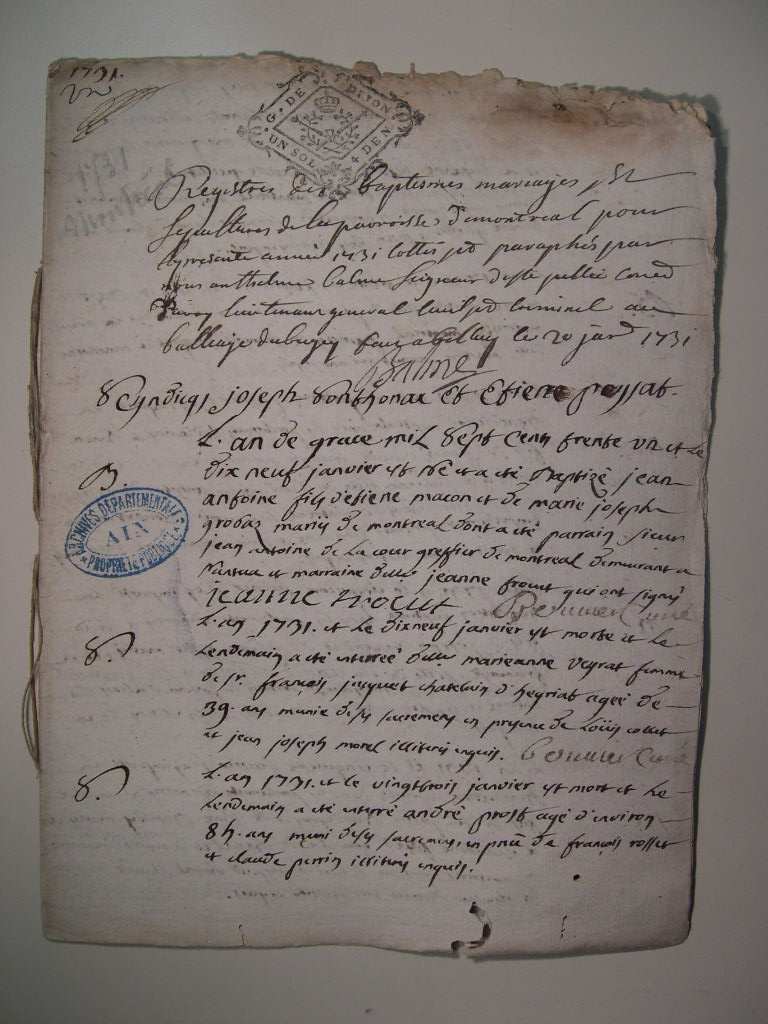 1731.
G. DE DIJON
UN SOL 4 DEN.
Registres des baptismes mariages Et
sepultures de la parroisse de montreal pour
la presente année 1731 cottés et paraphés par
nous anthelme balme Seigneur de ste julie
lieutenant general civil et criminel au
balliage du bugey le 20 janv 1731
Balme
Scyndicqs joseph et Etiene passat.
L'an de grace mil sept cents trente un et le
B. dix neuf janvier est né et a été Baptizé jean
antoine fils d'etiene macon et de marie joseph
grobas mariés de montreal dont a été parrain sieur
jean antoine de la cour greffier de montreal demeurant a
Nantua et marraine dlle jeanne frout qui ont signé
jeanne frout curé
S. L'an 1731. et le dixneuf janvier est morte et le
lendemain a été enterrée dlle marieanne veyrat femme
de sr. françois jacquet chatelain d'heyriat agée de
39. ans munie de ses sacremens en presence de Loüis collet
et jean joseph morel illiterés enquis. curé
S. L'an 1731. et le vingttrois janvier est mort et le
lendemain a été enterré andré prost agé d'environ
85. ans muni de ses sacremens en pnce de françois rosset
et claude perrin illiterés enquis.
ARCHIVES DEPARTEMENTALES
AIN
PROPRIETE PUBLIQUE